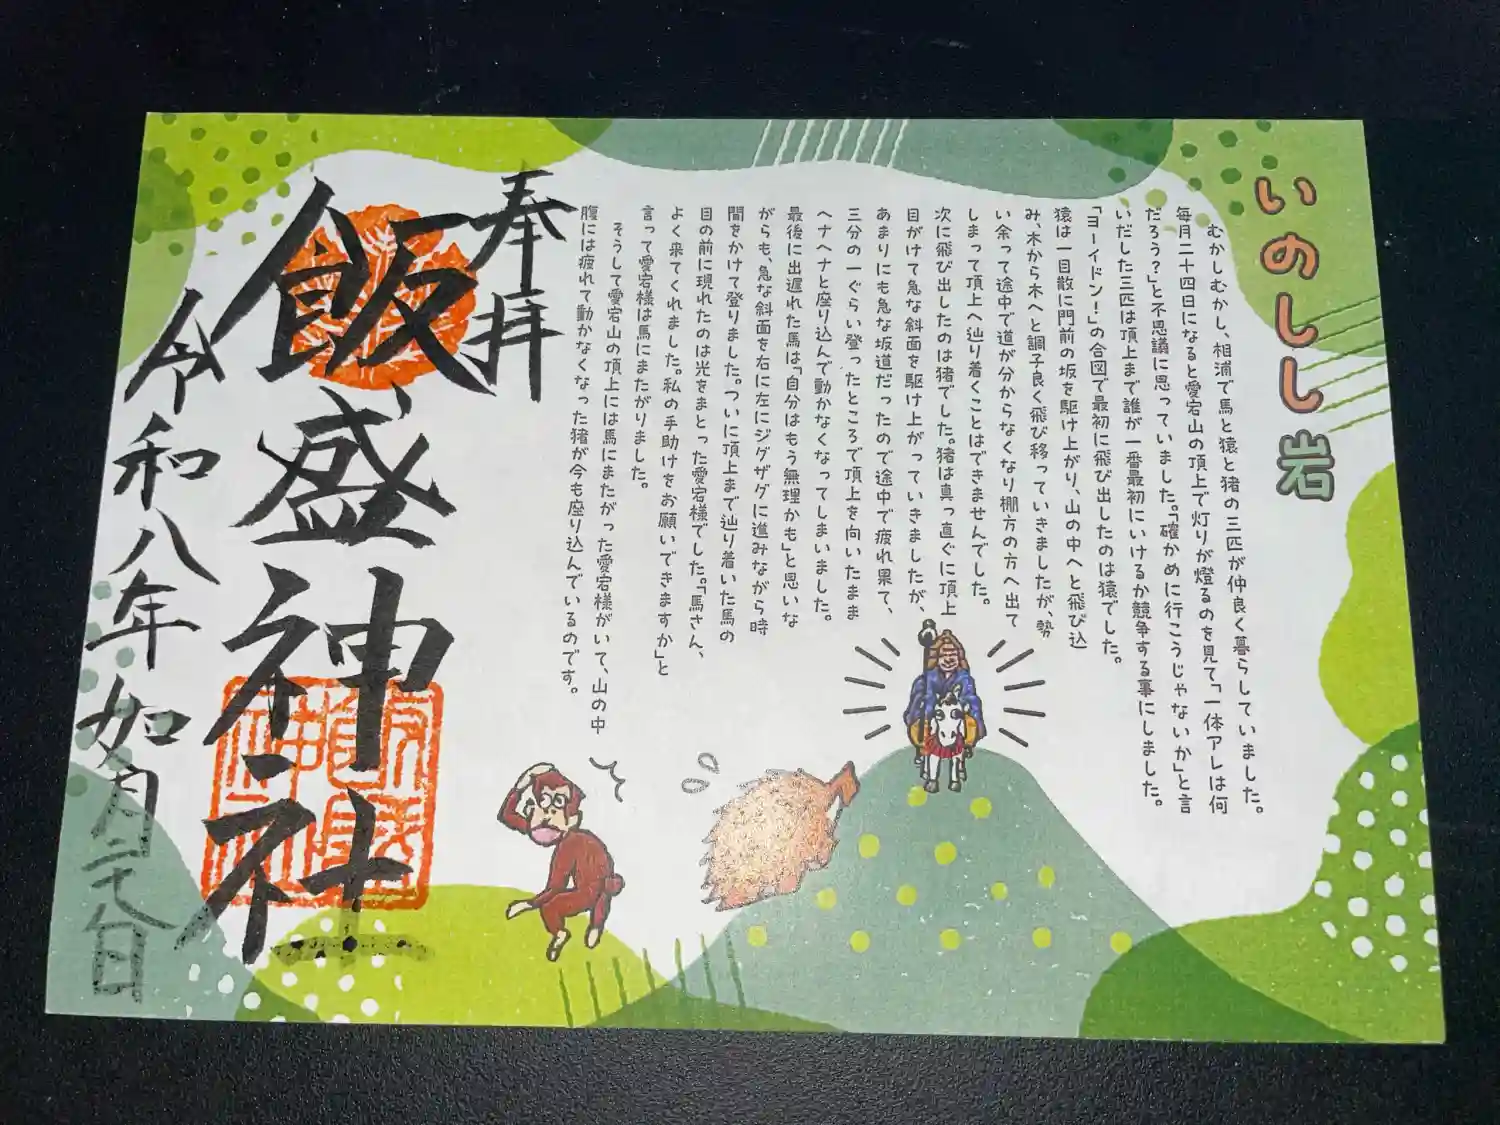 いのしし岩
むかしむかし、相浦で馬と猿と猪の三匹が仲良く暮らしていました。
毎月二十四日になると愛宕山の頂上で灯りが燈るのを見て「一体アレは何
だろう?」と不思議に思っていました。「確かめに行こうじゃないか」と言
いだした三匹は頂上まで誰が一番最初にいけるか競争する事にしました。
「ヨーイドン!」の合図で最初に飛び出したのは猿でした。
猿は一目散に門前の坂を駆け上がり、山の中へと飛び込
み、木から木へと調子良く飛び移っていきましたが、勢
い余って途中で道が分からなくなり棚方の方へ出て
しまって頂上へ辿り着くことはできませんでした。
次に飛び出したのは猪でした。猪は真っ直ぐに頂上
目がけて急な斜面を駆け上がっていきましたが、
あまりにも急な坂道だったので途中で疲れ果て、
三分の一ぐらい登ったところで頂上を向いたまま
ヘナヘナと座り込んで動かなくなってしまいました。
最後に出遅れた馬は「自分はもう無理かも」と思いな
がらも、急な斜面を右に左にジグザグに進みながら時
間をかけて登りました。ついに頂上まで辿り着いた馬の
目の前に現れたのは光をまとった愛宕様でした。「馬さん、
よく来てくれました。私の手助けをお願いできますか」と
言って愛宕様は馬にまたがりました。
そうして愛宕山の頂上には馬にまたがった愛宕様がいて、山の中
腹には疲れて動かなくなった猪が今も座り込んでいるのです。
奉拝
飯盛神社
令和八年如月二十八日